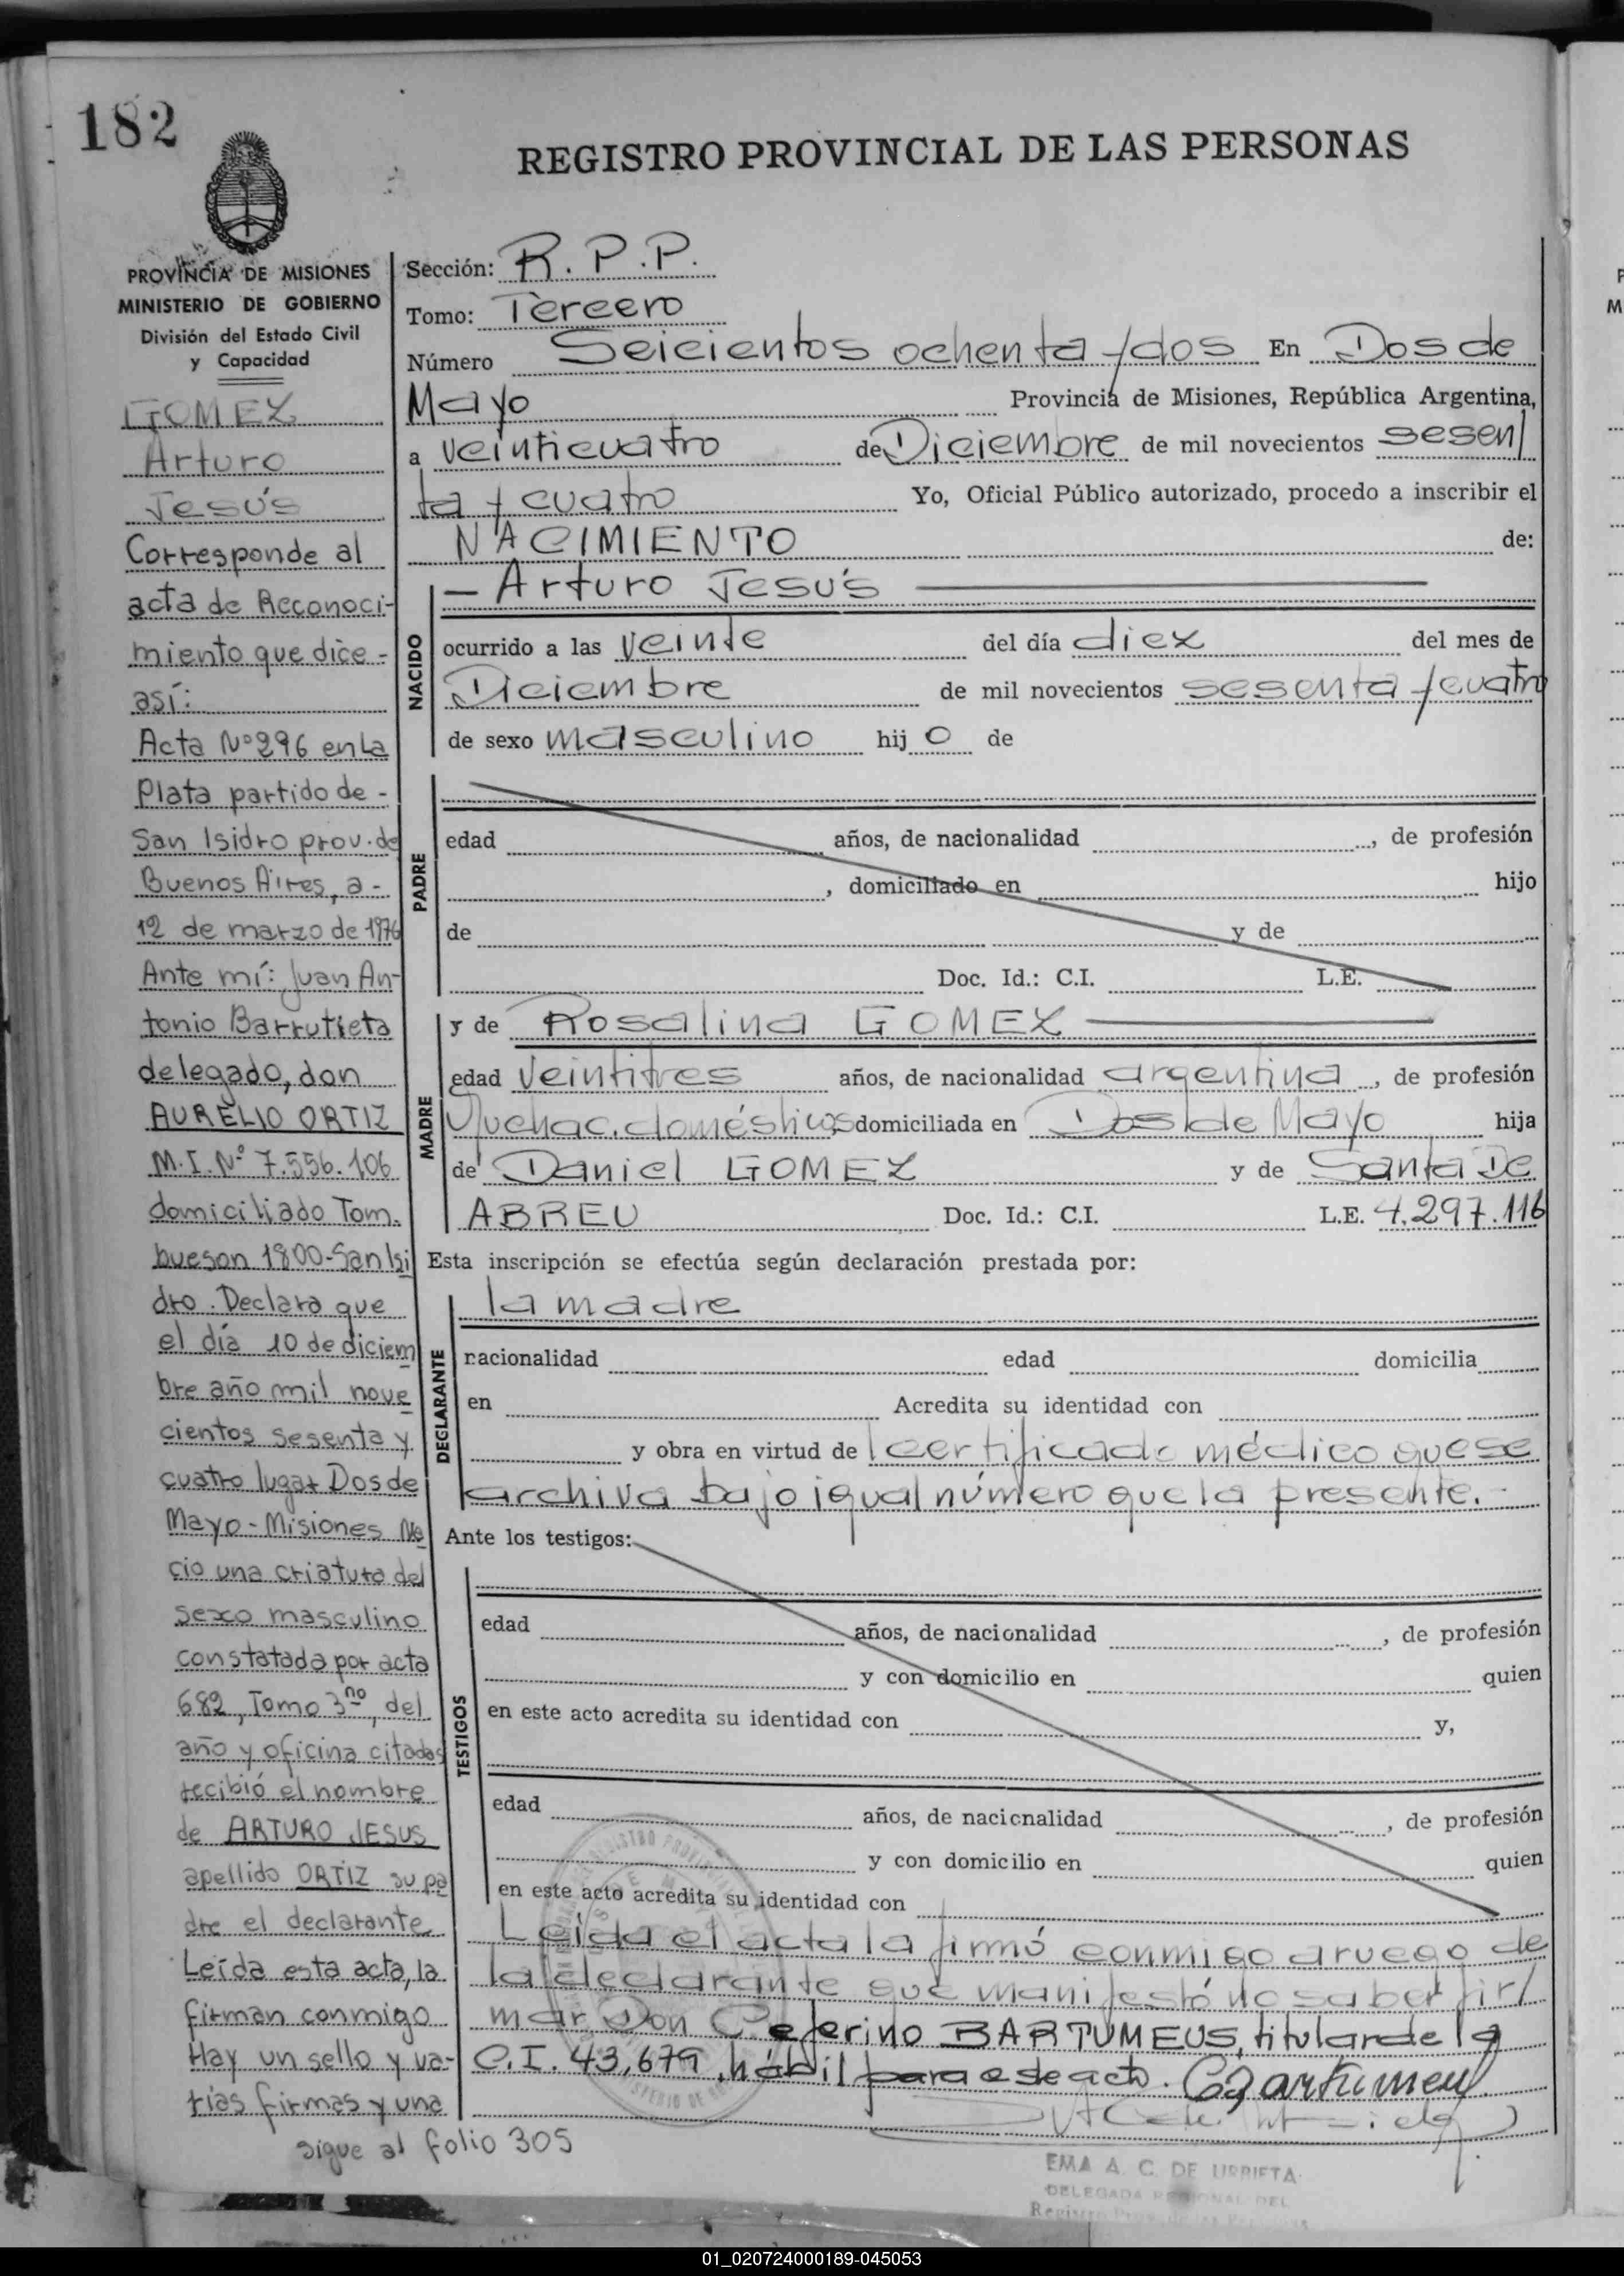 182
REGISTRO PROVINCIAL DE LAS PERSONAS
PROVINCIA DE MISIONES
MINISTERIO DE GOBIERNO
División del Estado Civil
y Capacidad
GOMEZ
Arturo
Jesús
Corresponde al
acta de Reconoci-
miento que dice -
así:
Acta Nº 296 en La
Plata partido de -
San Isidro prov. de
Buenos Aires, a -
12 de marzo de 1976
Ante mí: Juan An-
tonio Barrutieta
delegado, don
AURELIO ORTIZ
M.I. Nº 7.556.106
domiciliado Tom.
bueson 1800-San Isi
dro. Declara que
el día 10 de diciem
bre año mil nove
cientos sesenta y
cuatro lugar Dos de
Mayo - Misiones Na
cio una criatura del
sexo masculino
constatada por acta
682, Tomo 3no, del
año y oficina citadas
recibió el nombre
de ARTURO JESUS
apellido ORTIZ su pa
dre el declarante
Leída esta acta, la
firman conmigo
Hay un sello y va-
rias firmas y una
sigue al folio 305
Sección: R. P. P.
Tomo: Tercero
Número Seicientos ochenta y dos En Dos de
Mayo Provincia de Misiones, República Argentina,
a veinticuatro de Diciembre de mil novecientos sesen/
ta y cuatro Yo, Oficial Público autorizado, procedo a inscribir el
NACIMIENTO de:
NACIDO
— Arturo Jesús
ocurrido a las veinte del día diez del mes de
Diciembre de mil novecientos sesenta y cuatro
de sexo masculino hij o de
PADRE
edad años, de nacionalidad , de profesión
, domiciliado en hijo
de y de
Doc. Id.: C.I. L.E.
MADRE
y de Rosalina GOMEZ
edad veintitres años, de nacionalidad argentina , de profesión
Quehac. domésticos domiciliada en Dos de Mayo hija
de Daniel GOMEZ y de Santa De
ABREU Doc. Id.: C.I. L.E. 4.297.116
Esta inscripción se efectúa según declaración prestada por:
DECLARANTE
la madre
nacionalidad edad domicilia
en Acredita su identidad con
y obra en virtud de l certificado médico que se
archiva bajo igual número que la presente. -
Ante los testigos:
TESTIGOS
edad años, de nacionalidad , de profesión
y con domicilio en quien
en este acto acredita su identidad con y,
edad años, de nacionalidad , de profesión
y con domicilio en quien
en este acto acredita su identidad con
Leida el acta la firmó conmigo a ruego de
la declarante que manifestó no saber fir/
mar Don Ceferino BARTUMEUS, titular de la
C.I. 43,679, hábil para este acto.
EMA A. C. DE URRIETA
DELEGADA REGIONAL DEL
01_020724000189-045053